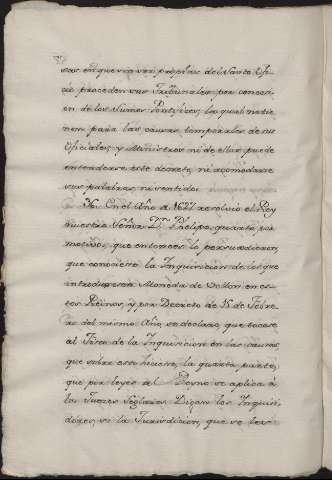 sas en que no son propias del Santo Ofi-
cio proceden sus Tribunales por concesi-
on de los Sumos Pontifices, la qual no tie-
nen para las causas temporales de sus
Oficiales, y Ministros ni de ellas puede
entenderse este decreto, ni acomodarse
sus palabras, ni sentido.
En el Año de resolvio el Rey
nuestro Señor Dn Phelipe quarto por
motivos, que entonces lo persuadieron,
que conociese la Inquisicion de los que
introdugesen Moneda de Vellon en es-
tos Reinos, y por Decreto de 15 de Febre-
ro del mismo Año, se declaro, que tocase
al Fisco de la Inquisicion en las causas
que sobre esto hiciere, la quarta parte,
que por leyes del Reyno se aplica à
los Jueces Seglares
dores ni la Jurisdicion, que se les